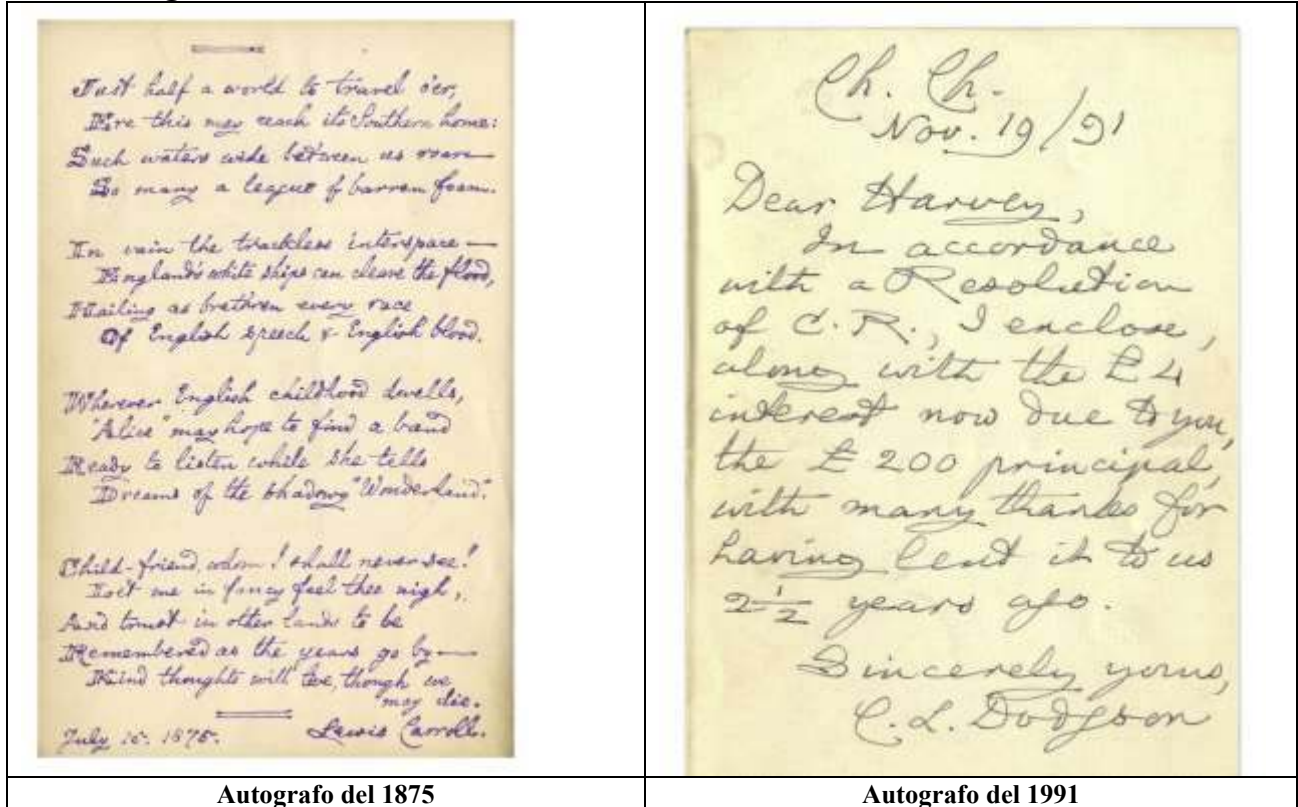 Just half a world to travel o'er,
Ere this may reach its Southern home:
Such waters wide between us roar—
So many a league of barren foam.
In vain the trackless interspace—
England's white ships can cleave the flood,
Hailing as brethren every race
Of English speech & English blood.
Wherever English childhood dwells,
"Alice" may hope to find a band
Ready to listen while she tells
Dreams of the shadowy "Wonderland".
Child-friend, whom I shall never see!
Let me in fancy feel thee nigh,
And trust in other lands to be
Remembered as the years go by—
Kind thoughts will live, though we
may die.
July 15. 1875. Lewis Carroll.
Autografo del 1875
Ch. Ch.
Nov. 19/91
Dear Harvey,
In accordance
with a Resolution
of C. R., I enclose,
along with the £4
interest now due to you,
the £200 principal,
with many thanks for
having lent it to us
2½ years ago.
Sincerely yours,
C. L. Dodgson
Autografo del 1991